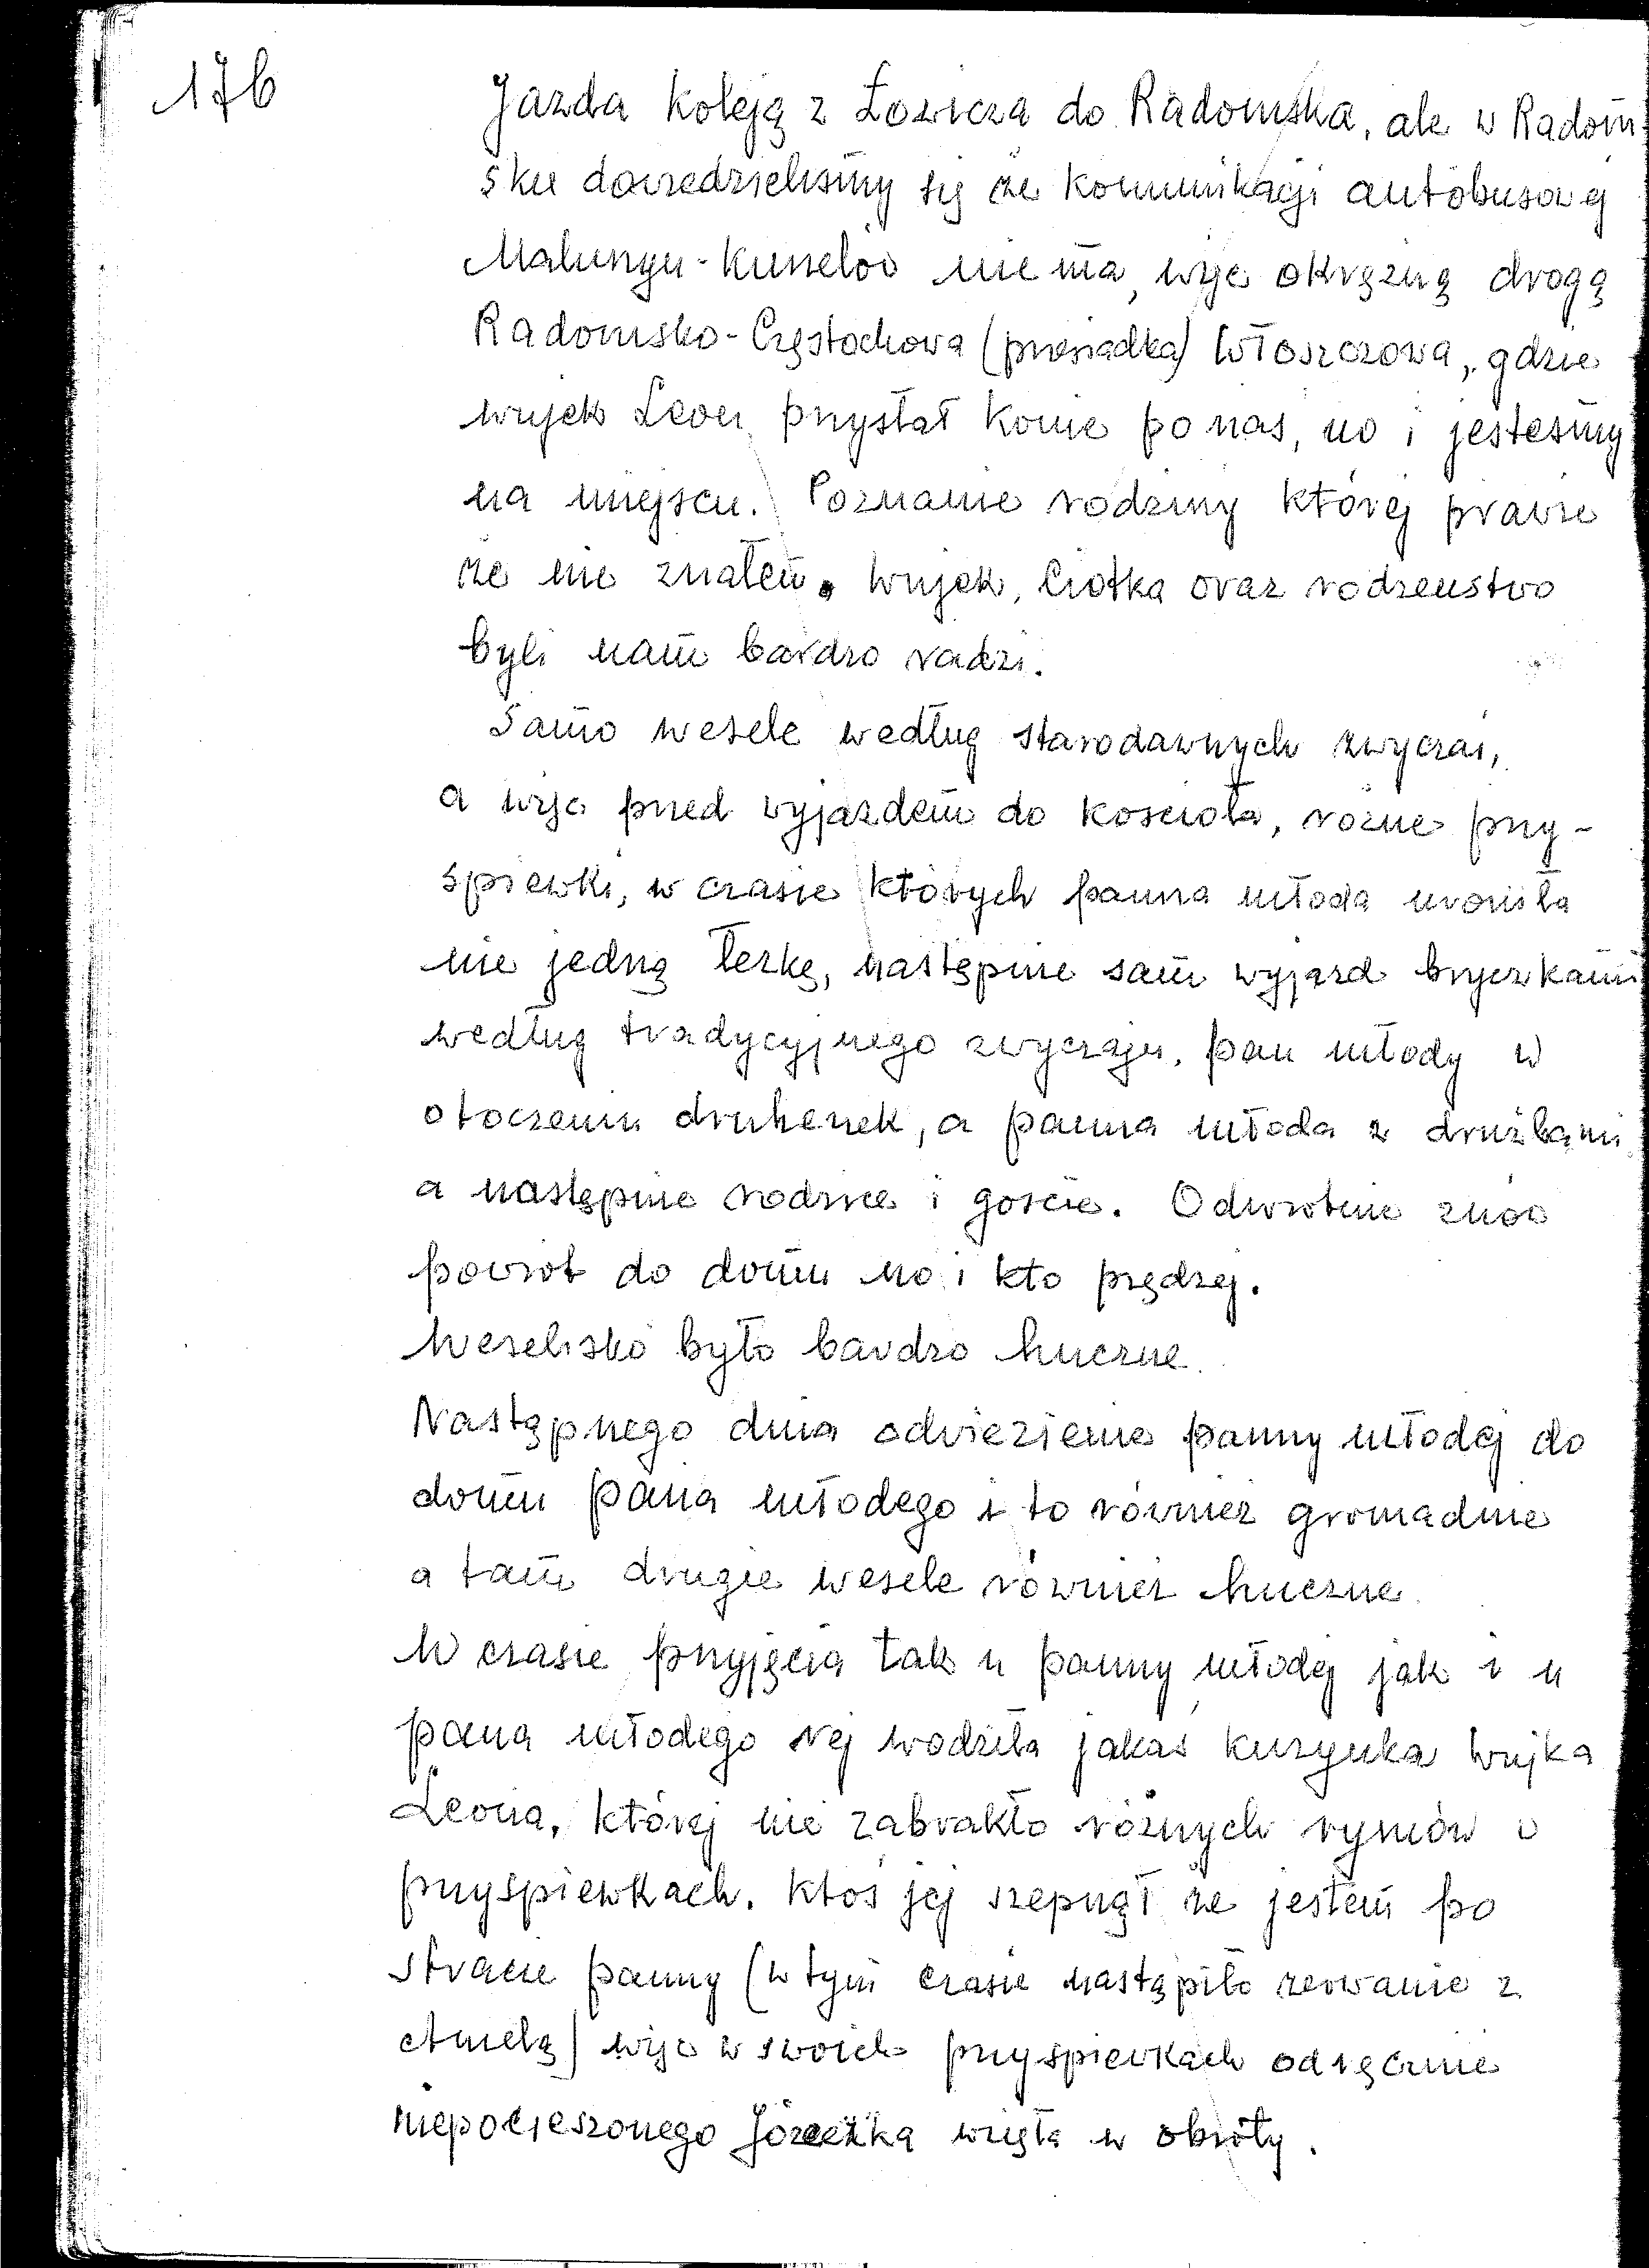 176
Jazda koleją z Łowicza do Radomska, ale w Radom-
sku dowiedzieliśmy się że komunikacji autobusowej
Maluszyn-Kurzelów nie ma, więc okrężną drogą
Radomsko-Częstochowa (przesiadka) Włoszczowa, gdzie
wujek Leon przysłał konie po nas, no i jesteśmy
na miejscu. Poznanie rodziny której prawie
że nie znałem. Wujek, Ciotka oraz rodzeństwo
byli nam bardzo radzi.
Samo wesele według starodawnych zwyczai,
a więc przed wyjazdem do kościoła, różne przy-
śpiewki, w czasie których panna młoda uroniła
nie jedną łezkę, następnie sam wyjazd bryczkami
według tradycyjnego zwyczaju, pan młody w
otoczeniu druhenek, a panna młoda z drużbami
a następnie rodzice i goście. Odwrotnie znów
powrót do domu no i kto prędzej.
Weselisko było bardzo huczne.
Następnego dnia odwiezienie panny młodej do
domu pana młodego i to również gromadnie
a tam drugie wesele również huczne.
W czasie przyjęcia tak u panny młodej jak i u
pana młodego rej wodziła jakaś kuzynka wujka
Leona, której nie zabrakło różnych rymów w
przyśpiewkach. Ktoś jej szepnął że jestem po
stracie panny (w tym czasie nastąpiło zerwanie z
Anielą) więc w swoich przyśpiewkach odręcznie
niepocieszonego Józeczka wzięła w obroty.